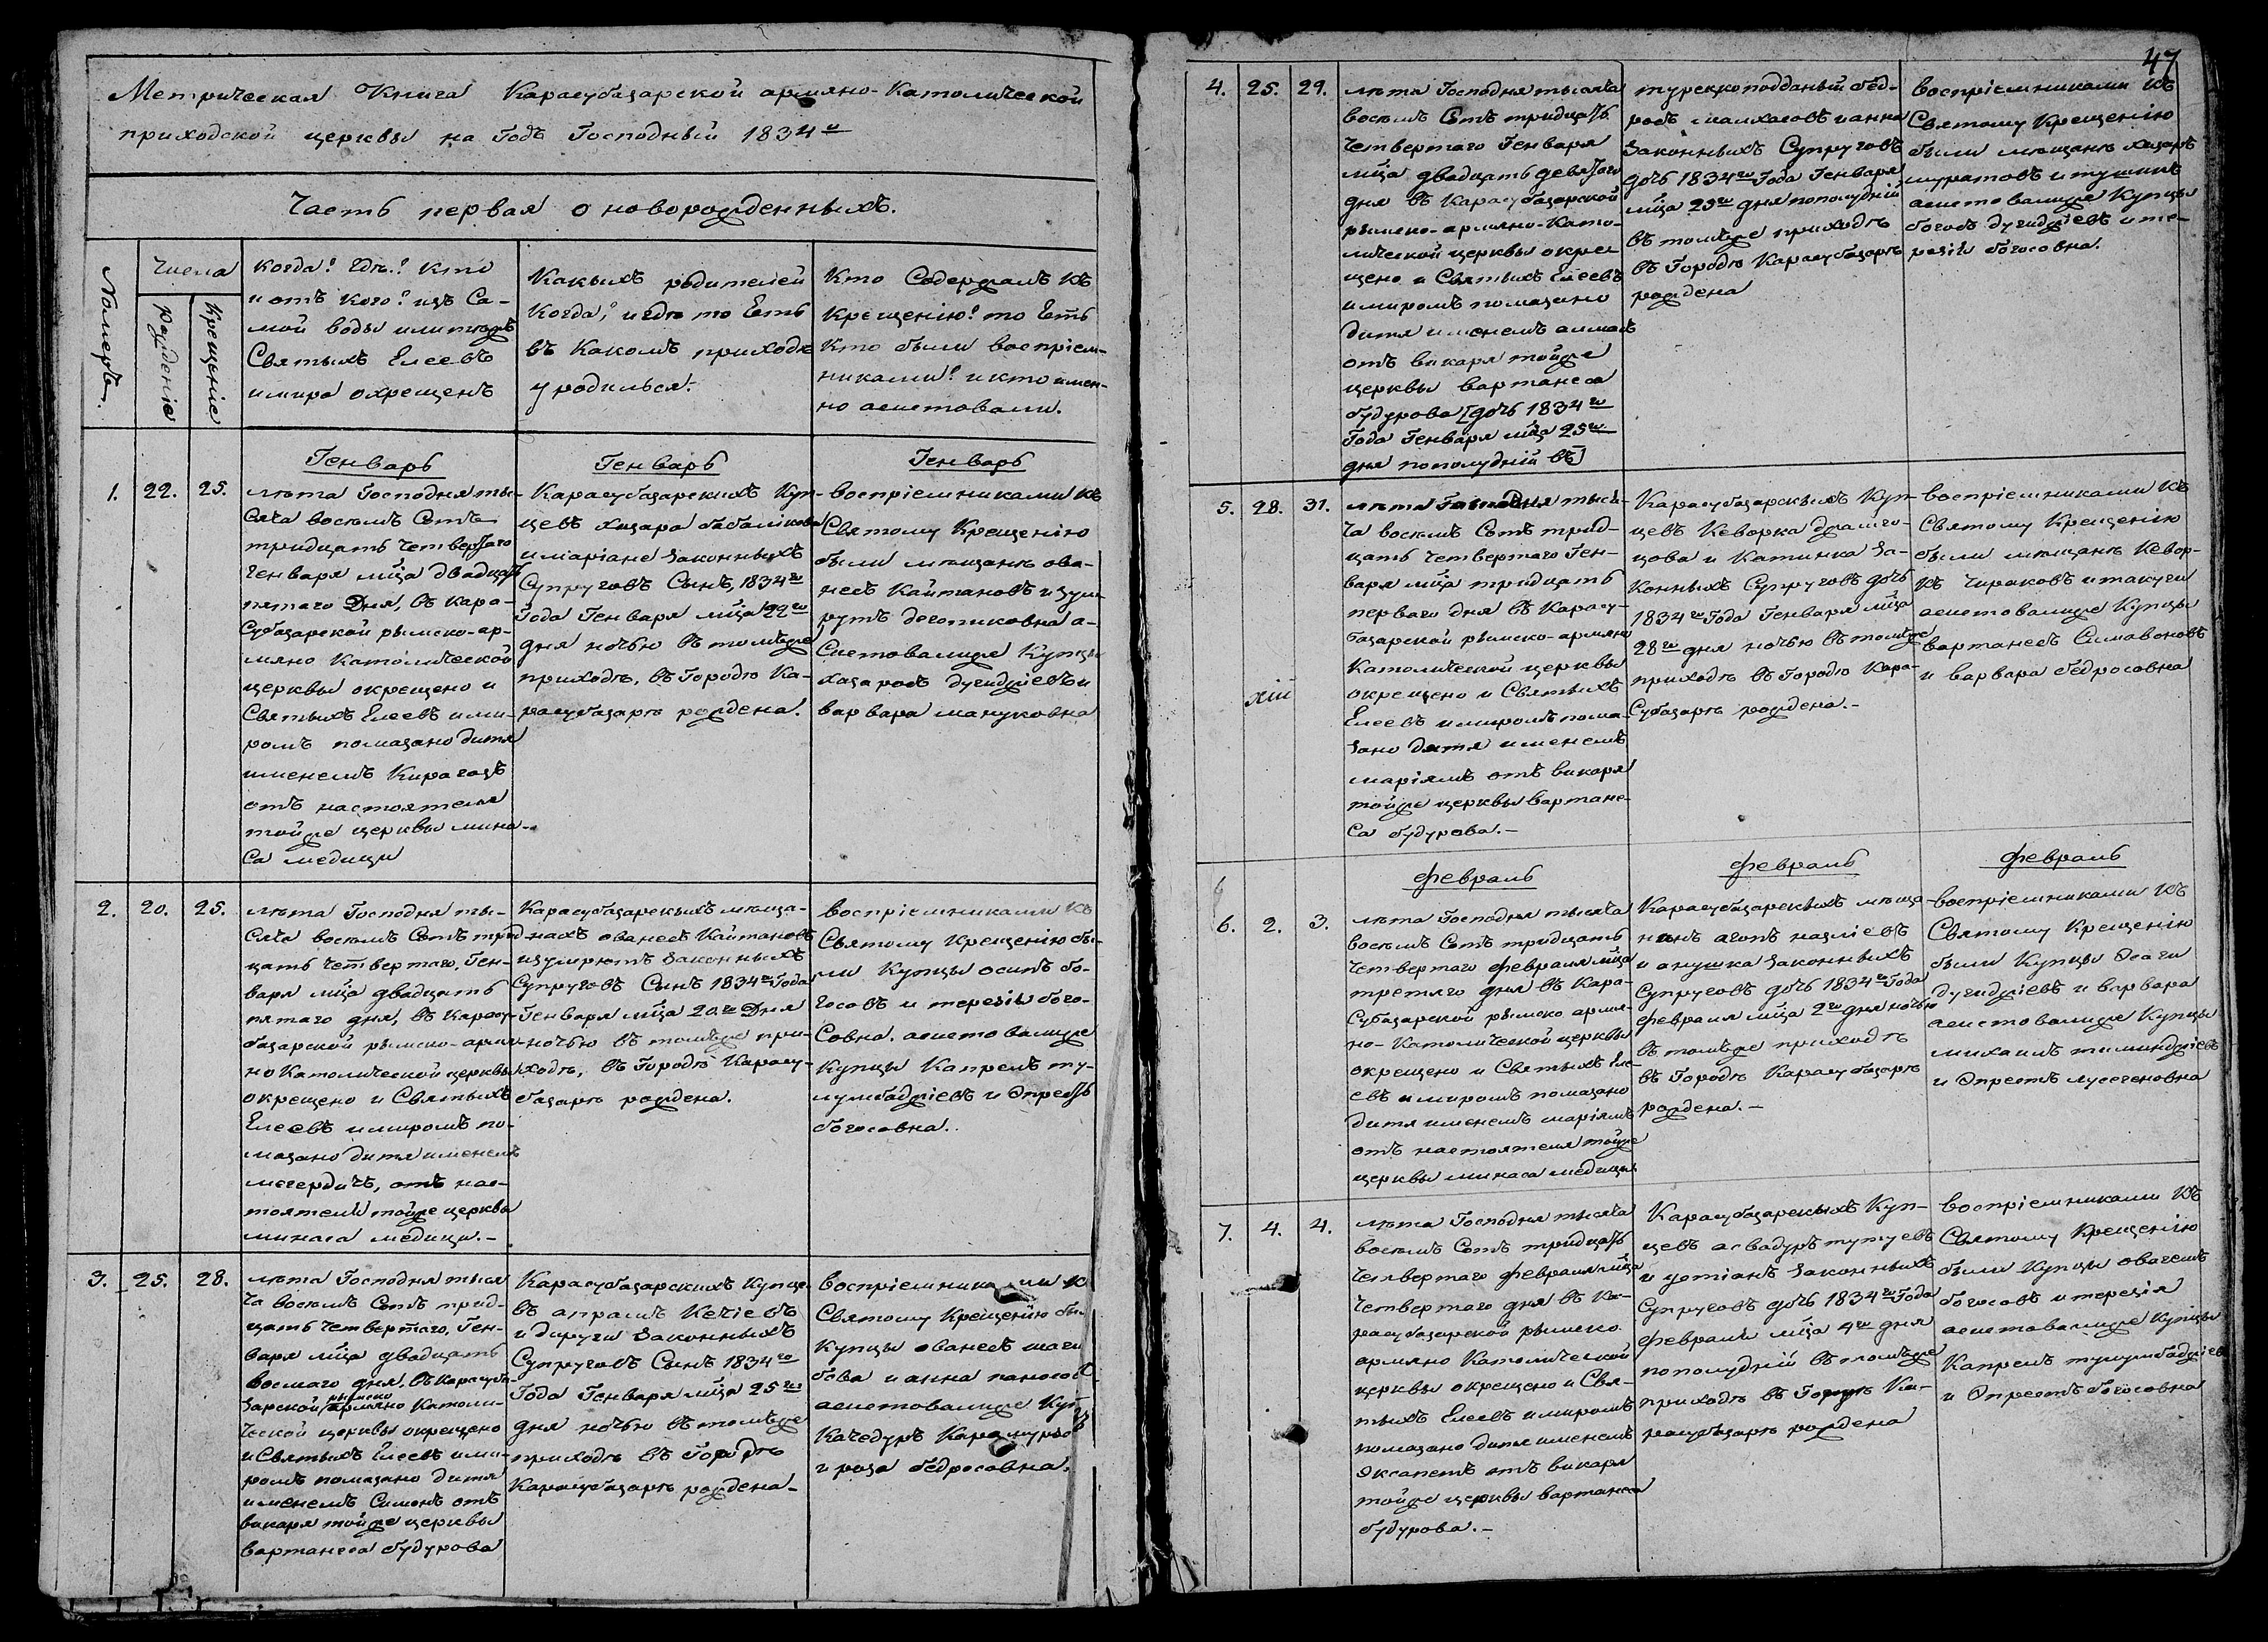 Метрическая Книга Карасубазарской армяно-Католической
приходской церквы на Годъ Господный 1834й
Часть первая о новорожденныхъ.
Номеръ.
Числа
рожденіе
Крещеніе
Когда? Гдѣ? Кто
и отъ кого? изъ Са-
мой воды или тожъ
Святыхъ Елеевъ
и мира окрещенъ
Какыхъ родителей
Когда? и гдѣ то Есть
въ Какомъ приходѣ
уродилься.
Кто Содержалъ Къ
Крещенію? то Есть
Кто были воспріем-
никами? и кто имен-
но асистовали.
Генварь
Генварь
Генварь
1. 22. 25.
лѣта Господня ты-
Сяча восемъ Сотъ
тридцать Четвертаго
Генваря мца двадцать
пятаго Дня, въ Кара-
Субазарской рымско-ар-
мяно Католической
церквы окрещено и
Святыхъ Елеевъ и ми-
ромъ помазано дитя
именемъ Кирагозъ
отъ настоятеля
тойже церквы мина-
Са медици
Карасубазарскихъ Куп-
цевъ хазара бабаликова
и маріане Законныхъ
Супруговъ Сынъ, 1834го
Года Генваря мца 22го
дня ночью въ томъже
приходѣ, въ Городѣ Ка-
расубазарѣ рождена.
воспріемниками Къ
Святому Крещенію
были мещанѣ ова-
несъ Кайтановъ и зум-
рутъ а-
Систовалиже Купцы
хазаросъ дугиджіевъ и
варвара мануковна
2. 20. 25.
лѣта Господня ты-
Сяча восемъ Сотъ трид-
цать Четвертаго, Ген-
варя мца двадцать
пятаго дня, въ Карасу-
базарской рымско-армя-
но Католической церквы
окрещено и Святыхъ
Елеевъ и миромъ по-
мазано дитя именемъ
мегердичъ, отъ нас-
тоятели тойже церквы
минаса медици.-
Карасубазарскихъ меща-
нахъ ованесъ Кайтановъ
и зумрютъ Законныхъ
Супруговъ Сынъ 1834го Года
Генваря мца 20го Дня
ночью въ томъже при-
ходѣ, въ Городѣ Карасу-
базарѣ рождена.
воспріемниками Къ
Святому Крещенію бы-
ли Купцы осипъ бо-
госовъ и терезіи бого-
Совна. асистовалиже
Купцы Капрелъ ту-
лумбаджіевъ и Эпресъ
богосовна.
3. 25. 28.
лѣта Господня тыся
Ча восемъ Сотъ трид-
цать Четвертаго, Ген-
варя мца двадцать
восмаго дня, въ Карасуба-
зарской рымско армяно Католи-
ческой церквы окрещено
и Святыхъ Елеевъ и ми-
ромъ помазано дитя
именемъ Симонъ отъ
викаря тойже церквы
вартанеса будурова
Карасубазарскихъ Купце-
въ апрамъ Кечіевъ
и дируги Законныхъ
Супруговъ Сынъ 1834го
Года Генваря мца 25го
дня ночью въ томъже
приходѣ въ Городѣ
Карасубазарѣ рождена-
воспріемниками К
Святому Крещенію бы
Купцы ованесъ шаги
бова и анна
асистовалиже
Качедуръ
и роза бедросовна.
47
4. 25. 29.
лѣта Господня тысяча
восемъ Сотъ тридцать
Четвертаго Генваря
мца двадцать девятаго
дня въ Карасубазарской
рымско-армяно-Като-
лической церквы окре-
щено и Святыхъ Елеевъ
и миромъ помазано
дитя именемъ алмасъ
отъ викаря тойже
церквы вартанеса
будурова [дочь 1834го
Года Генваря мца 25го
дня пополудній въ]
турецкоподданый бед-
росъ малхасовъ и анна
Законныхъ Супруговъ
дочь 1834го Года Генваря
мца 25го дня пополудній
въ томъже приходѣ
въ Городѣ Карасубазарѣ
рождена
воспріемниками Къ
Святому Крещенію
были мещанѣ хазаръ
муратовъ и
асистовалиже Купцы
богосъ дугиджіевъ и те-
резіи богосовна.
5. 28. 31.
хііі
лѣта Господня тыся-
Ча восемъ Сотъ трид-
цать Четвертаго Ген-
варя мца тридцать
перваго дня въ Карасу-
базарской рымско-армяно
Католической церквы
окрещено и Святыхъ
Елеевъ и миромъ пома-
зано дитя именемъ
маріямъ отъ викаря
тойже церквы вартане-
Са будурова.-
Карасубазарскихъ Куп-
цевъ Кеворка драмго-
цова и Катинка За-
Конныхъ Супруговъ дочь
1834го Года Генваря мца
28го дня ночью въ томъже
приходѣ въ Городѣ Кара-
Субазарѣ рождена.-
воспріемниками Къ
Святому Крещенію
были мещанѣ Кевор-
Къ Чираковъ и такуги
асистовалиже Купцы
вартанесъ Симавоновъ
и варвара бедросовна
февраль
февраль
февраль
6. 2. 3.
лѣта Господня тысяча
восемъ Сотъ тридцать
Четвертаго февраля мца
третяго дня въ Кара-
Субазарской рымско армя-
но-Католической церквы
окрещено и Святыхъ Еле-
евъ и миромъ помазано
дитя именемъ маріямъ
отъ настоятеля тойже
церквы минаса медици
Карасубазарскихъ меща-
нинъ агопъ назліевъ
и анушка Законныхъ
Супруговъ дочь 1834го Года
февраля мца 2го дня ночью
въ томъже приходѣ
въ Городѣ Карасубазарѣ
рождена.-
воспріемниками Къ
Святому Крещенію
были Купцы Эсаги
дугиджіевъ и варвара
асистовалиже Купцы
михаилъ тиминджіевъ
и Эпресъ лусегеновна
7. 4. 4.
лѣта Господня тысяча
восемъ Сотъ тридцать
Четвертаго февраля мца
Четвертаго дня въ Ка-
расубазарской рымско
армяно Католической
церквы окрещено и Свя-
тыхъ Елеевъ и миромъ
помазано дитя именемъ
Эксапетъ отъ викаря
тойже церквы вартанеса
будурова.-
Карасубазарскихъ Куп-
цевъ асвадуръ тутуевъ
и устіанъ Законныхъ
Супруговъ дочь 1834го Года
февраля мца 4го дня
пополудній въ томъже
приходѣ въ Городѣ Ка-
расубазарѣ рождена
воспріемниками Къ
Святому Крещенію
были Купцы овагемъ
богосовъ и терезія
асистовалиже Купцы
Капрелъ тулумбаджіев
и Эпресъ богосовна